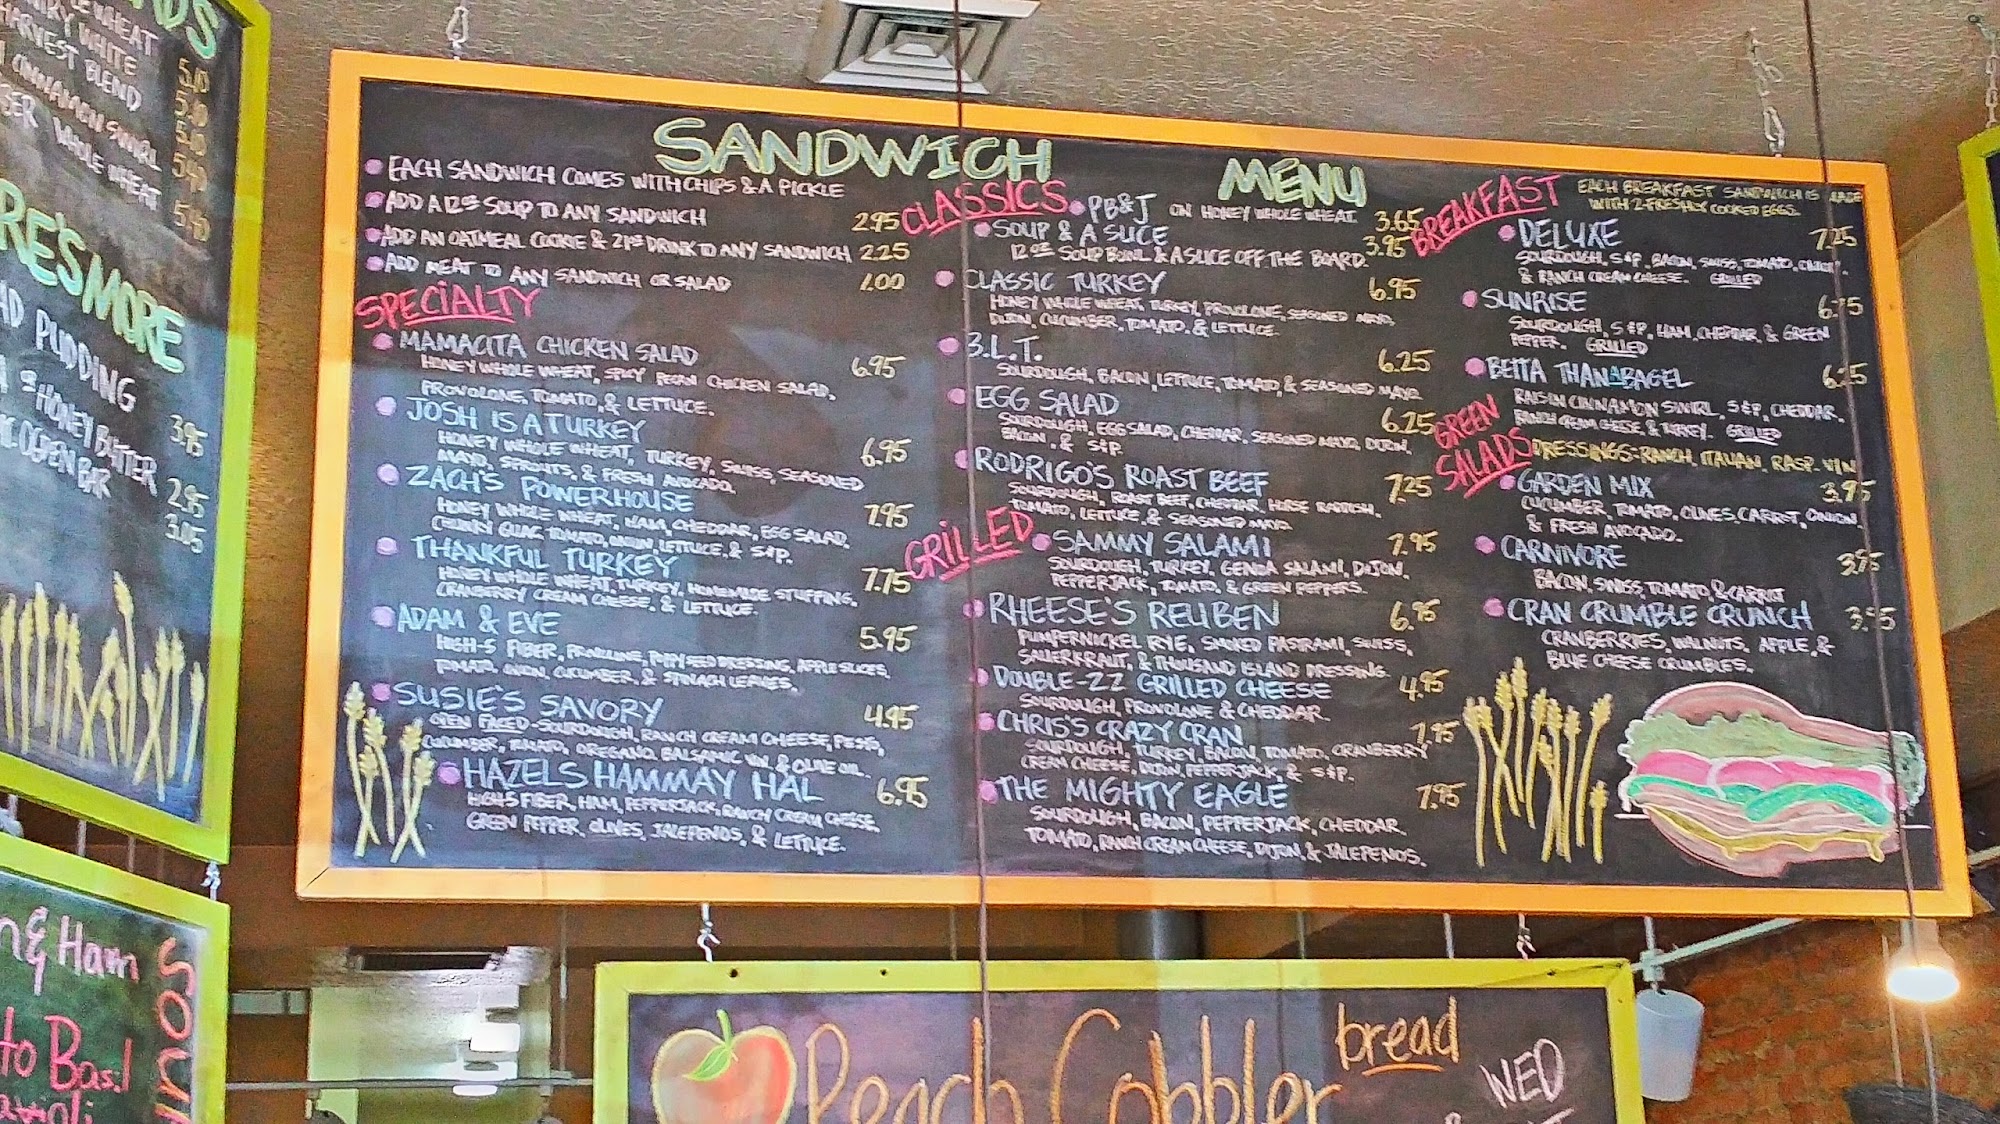 WHEAT
WHITE 5.10
HARVEST BLEND 5.10
CINNAMON SWIRL 5.10
WHOLE WHEAT 5.40
5.40
RE'S MORE
PUDDING 3.95
HONEY BUTTER 2.95
OGDEN BAR 3.05
& Ham
to Basil
SANDWICH MENU
EACH SANDWICH COMES WITH CHIPS & A PICKLE
ADD A 12oz SOUP TO ANY SANDWICH 2.95
ADD AN OATMEAL COOKIE & 21oz DRINK TO ANY SANDWICH 2.25
ADD MEAT TO ANY SANDWICH OR SALAD 1.00
SPECIALTY
MAMACITA CHICKEN SALAD 6.95
HONEY WHOLE WHEAT, SPICY PECAN CHICKEN SALAD,
PROVOLONE, TOMATO, & LETTUCE.
JOSH IS A TURKEY 6.95
HONEY WHOLE WHEAT, TURKEY, SWISS, SEASONED
MAYO, SPROUTS, & FRESH AVOCADO.
ZACH'S POWERHOUSE 7.95
HONEY WHOLE WHEAT, HAM, CHEDDAR, EGG SALAD,
CHUNKY GUAC, TOMATO, ONION, LETTUCE, & S&P.
THANKFUL TURKEY 7.75
HONEY WHOLE WHEAT, TURKEY, HOMEMADE STUFFING,
CRANBERRY CREAM CHEESE, & LETTUCE.
ADAM & EVE 5.95
HIGH-5 FIBER, PROVOLONE, POPPYSEED DRESSING, APPLE SLICES,
TOMATO, ONION, CUCUMBER, & SPINACH LEAVES.
SUSIE'S SAVORY 4.95
OPEN FACED-SOURDOUGH, RANCH CREAM CHEESE, PESTO,
CUCUMBER, TOMATO, OREGANO, BALSAMIC VIN. & OLIVE OIL.
HAZELS HAMMAY HAL 6.95
HIGH 5 FIBER, HAM, PEPPERJACK, RANCH CREAM CHEESE,
GREEN PEPPER, OLIVES, JALEPENOS, & LETTUCE.
CLASSICS
PB&J ON HONEY WHOLE WHEAT. 3.65
SOUP & A SLICE 3.95
12 oz SOUP BOWL & A SLICE OFF THE BOARD.
CLASSIC TURKEY 6.95
HONEY WHOLE WHEAT, TURKEY, PROVOLONE, SEASONED MAYO,
DIJON, CUCUMBER, TOMATO, & LETTUCE.
B.L.T. 6.25
SOURDOUGH, BACON, LETTUCE, TOMATO, & SEASONED MAYO.
EGG SALAD 6.25
SOURDOUGH, EGG SALAD, CHEDDAR, SEASONED MAYO, DIJON,
BACON, & S&P.
RODRIGO'S ROAST BEEF 7.25
SOURDOUGH, ROAST BEEF, CHEDDAR, HORSE RADISH,
TOMATO, LETTUCE, & SEASONED MAYO
GRILLED
SAMMY SALAMI 7.95
SOURDOUGH, TURKEY, GENOA SALAMI, DIJON,
PEPPERJACK, TOMATO, & GREEN PEPPERS.
RHEESE'S REUBEN 6.95
PUMPERNICKEL RYE, SMOKED PASTRAMI, SWISS,
SAUERKRAUT, & THOUSAND ISLAND DRESSING.
DOUBLE-ZZ GRILLED CHEESE 4.95
SOURDOUGH, PROVOLONE & CHEDDAR.
CHRIS'S CRAZY CRAN 7.95
SOURDOUGH, TURKEY, BACON, TOMATO, CRANBERRY
CREAM CHEESE, DIJON, PEPPERJACK, & S&P.
THE MIGHTY EAGLE 7.95
SOURDOUGH, BACON, PEPPERJACK, CHEDDAR,
TOMATO, RANCH CREAM CHEESE, DIJON, & JALEPENOS.
BREAKFAST
EACH BREAKFAST SANDWICH IS MADE
WITH 2 FRESHLY COOKED EGGS
DELUXE 7.25
SOURDOUGH, S&P, BACON, SWISS, TOMATO, ONION,
& RANCH CREAM CHEESE. GRILLED
SUNRISE
SOURDOUGH, S&P, HAM, CHEDDAR, & GREEN
PEPPER. GRILLED
BETTA THAN A BAGEL 6.25
RAISIN CINNAMON SWIRL, S&P, CHEDDAR,
RANCH CREAM CHEESE, & TURKEY. GRILLED
GREEN SALADS
DRESSINGS: RANCH, ITALIAN, RASP. VIN
GARDEN MIX 3.95
CUCUMBER, TOMATO, OLIVES, CARROT, ONION,
& FRESH AVOCADO.
CARNIVORE 3.95
BACON, SWISS, TOMATO, & CARROT
CRAN CRUMBLE CRUNCH 3.95
CRANBERRIES, WALNUTS, APPLE, &
BLUE CHEESE CRUMBLES.
Peach Cobbler bread
WED